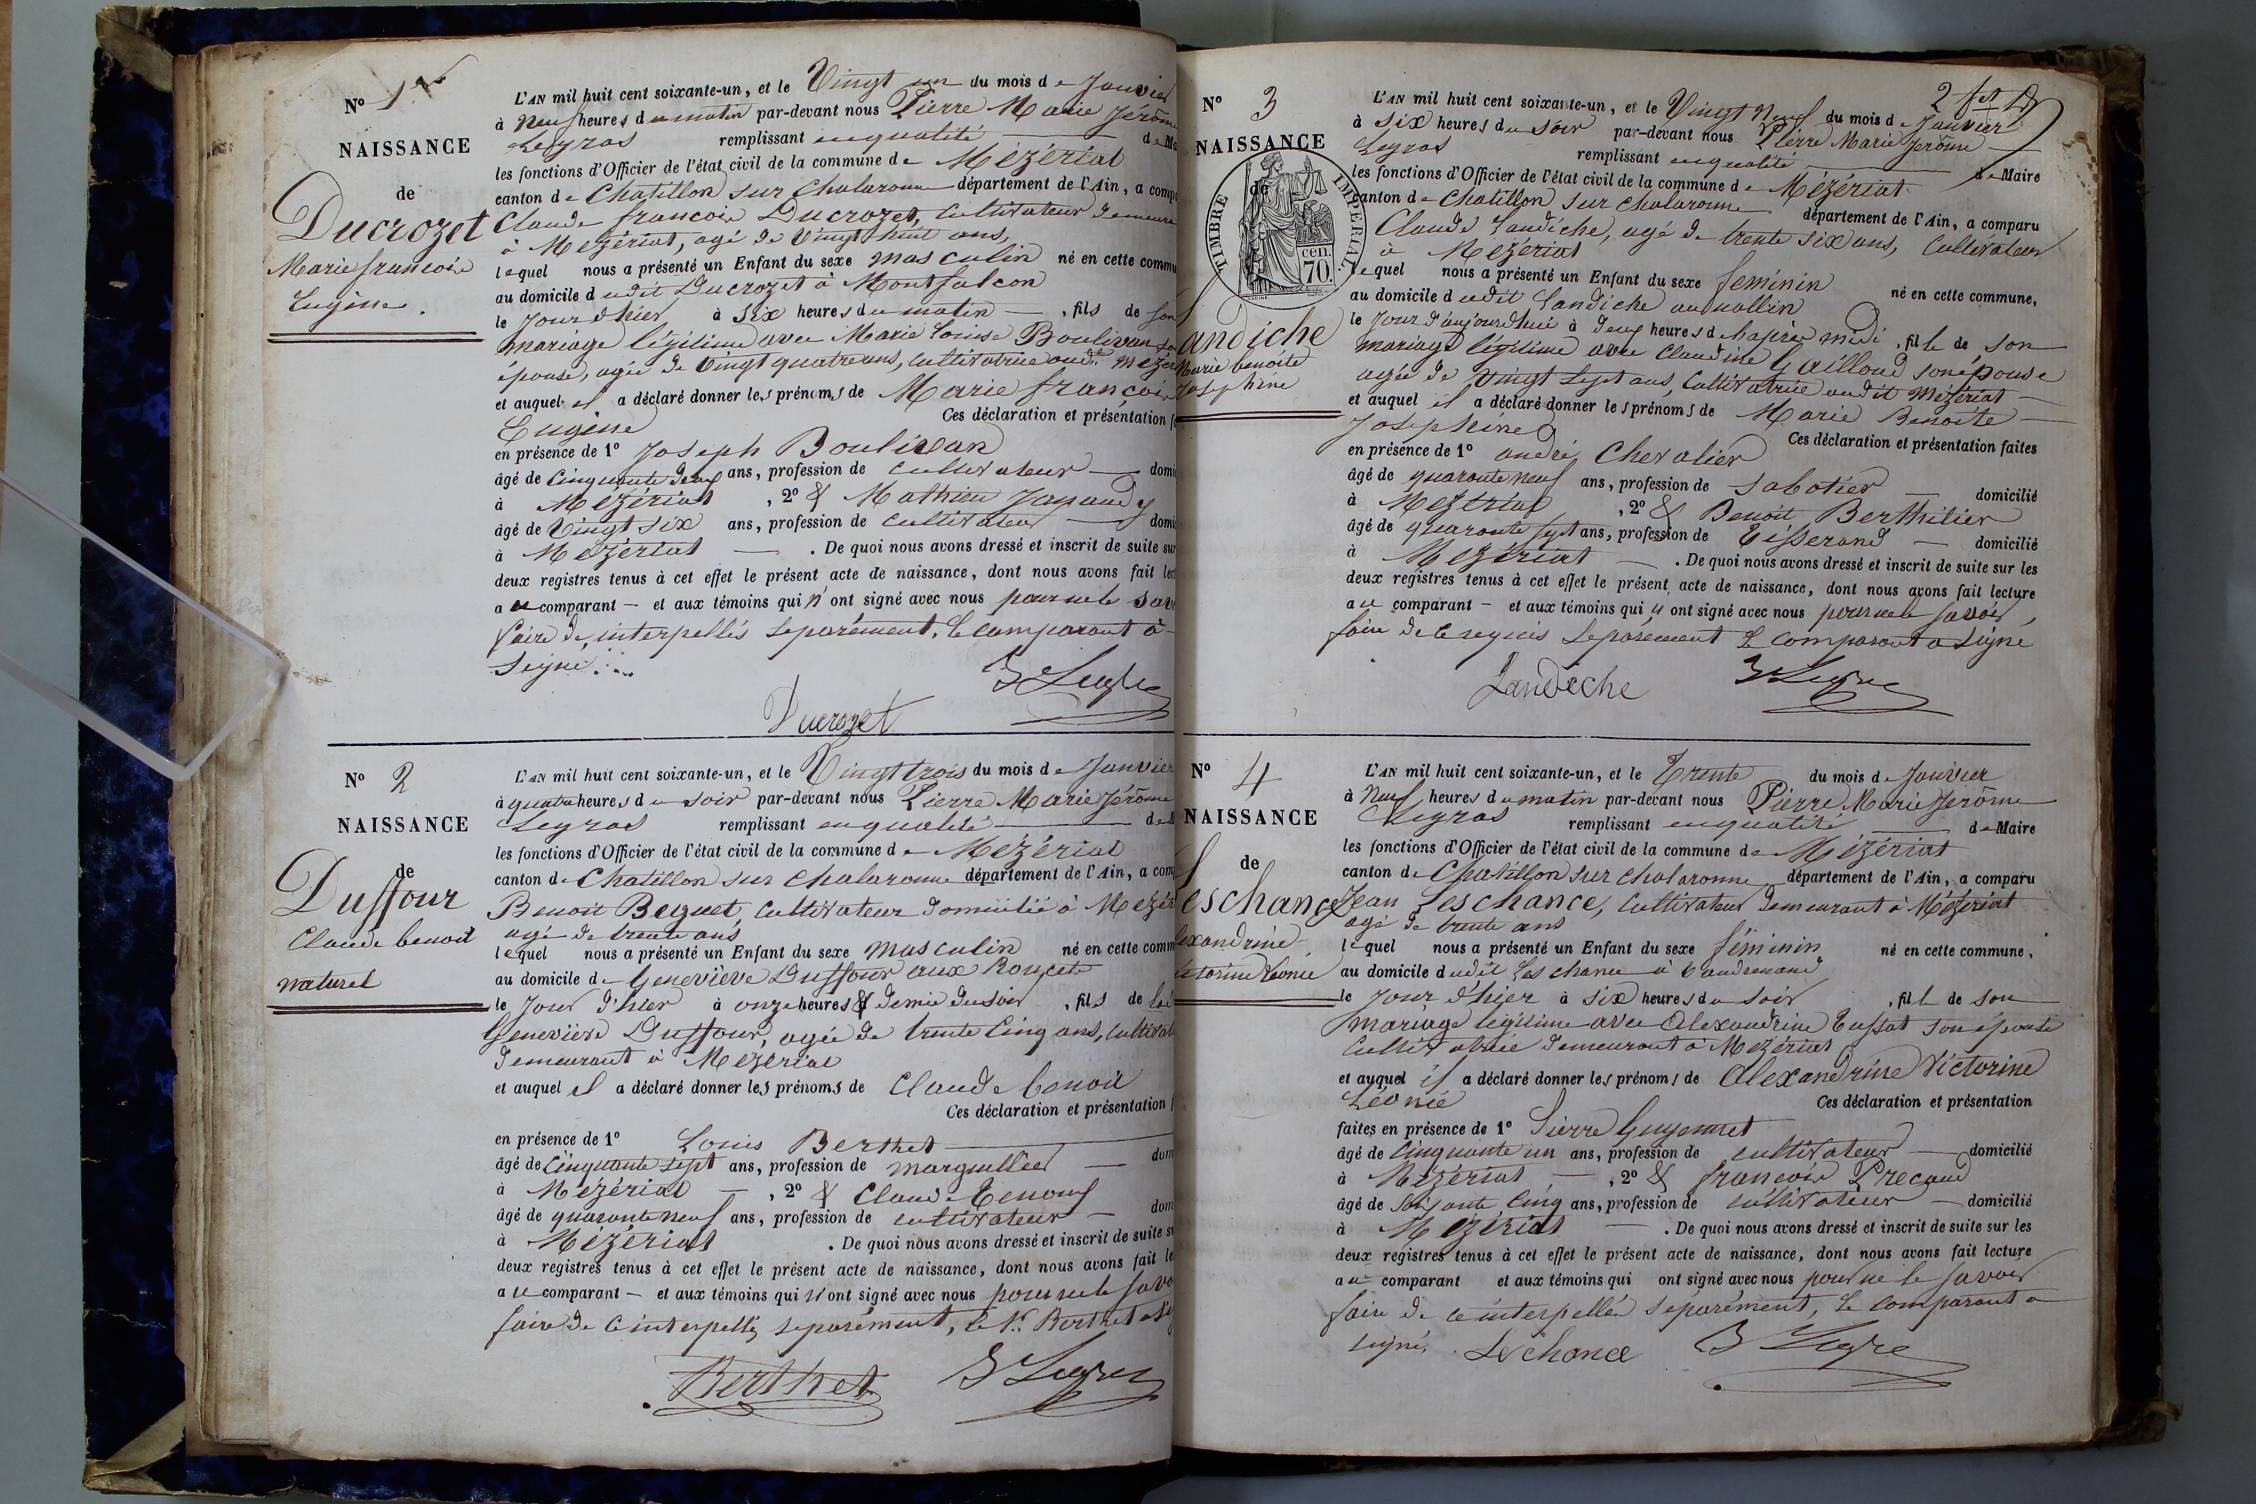 N° 1er
NAISSANCE
de
Ducrozet
Marie françois
Eugène.
L'AN mil huit cent soixante-un, et le Vingt un du mois de Janvier
à Neuf heures du matin par-devant nous Pierre Marie Jérôme
Legras remplissant en qualité de Ma
les fonctions d'Officier de l'état civil de la commune de Mézériat
canton de Chatillon sur Chalaronne département de l'Ain, a comp
Claude françois Ducrozet, Cultivateur demeura
à Mézériat, agé de Vingt huit ans,
lequel nous a présenté un Enfant du sexe masculin né en cette commu
au domicile dudit Ducrozet à Montfalcon
le Jour d'hier à Six heures du matin , fils de son
mariage légitime avec Marie Louise Boulivan so
épouse, agée de Vingt quatre ans, Cultivatrice audt Mézér
et auquel il a déclaré donner les prénoms de Marie françois
Eugène Ces déclaration et présentation f
en présence de 1° Joseph Boulivan
âgé de Cinquante deux ans, profession de cultivateur domi
à Mézériat , 2° & Mathieu
âgé de Vingt six ans, profession de cultivateur domi
à Mézériat . De quoi nous avons dressé et inscrit de suite sur
deux registres tenus à cet effet le présent acte de naissance, dont nous avons fait lect
au comparant — et aux témoins qui n'ont signé avec nous pour ne le Savo
faire de, interpellés séparément, le comparant à
Signé.
Ducrozet
N° 2
NAISSANCE
de
Duffour
Claude benoit
naturel
L'AN mil huit cent soixante-un, et le Vingt trois du mois de Janvier
à quatre heures du soir par-devant nous Pierre Marie Jérôme
Legras remplissant en qualité de M
les fonctions d'Officier de l'état civil de la commune de Mézériat
canton de Chatillon sur Chalaronne département de l'Ain, a com
Benoit Beguet, Cultivateur domicilié à Mézér
agé de trente ans
lequel nous a présenté un Enfant du sexe masculin né en cette comm
au domicile de Geneviève Duffour aux
le Jour d'hier à onze heures & demie du soir , fils de
Geneviève Duffour, agée de trente Cinq ans, Cultivat
demeurant à Mézériat
et auquel il a déclaré donner les prénoms de Claude benoit
Ces déclaration et présentation f
en présence de 1° Louis Berthet
âgé de Cinquante sept ans, profession de marguillier dom
à Mézériat , 2° & Claude
âgé de quarante neuf ans, profession de cultivateur dom
à Mézériat . De quoi nous avons dressé et inscrit de suite su
deux registres tenus à cet effet le présent acte de naissance, dont nous avons fait le
au comparant — et aux témoins qui n'ont signé avec nous pour ne le Savo
faire de ce interpellés séparément, le Sr. Berthet a
Berthet
2 fet
N° 3
NAISSANCE
de
TIMBRE IMPERIAL
70 cen.
andiche
Marie benoite
Joséphine
L'AN mil huit cent soixante-un, et le Vingt Neuf du mois de Janvier
à Six heures du soir par-devant nous Pierre Marie Jérôme
Legras remplissant en qualité de Maire
les fonctions d'Officier de l'état civil de la commune de Mézériat
canton de Chatillon sur Chalaronne département de l'Ain, a comparu
Claude Landiche, agé de trente six ans, Cultivateur
à Mézériat
lequel nous a présenté un Enfant du sexe feminin né en cette commune,
au domicile dudit Landiche au
le Jour d'aujourdhui à deux heures de haprès midi , fille de son
mariage légitime avec Claudine Gailloud son épouse
agée de Vingt Sept ans, Cultivatrice audit Mézériat
et auquel il a déclaré donner les prénoms de Marie Benoite
Joséphine Ces déclaration et présentation faites
en présence de 1° andré Chevalier
âgé de quarante neuf ans, profession de Sabotier domicilié
à Mézériat , 2° & Benoit Berthilier
âgé de quarante sept ans, profession de Tisserand domicilié
à Mézériat . De quoi nous avons dressé et inscrit de suite sur les
deux registres tenus à cet effet le présent acte de naissance, dont nous avons fait lecture
au comparant — et aux témoins qui n ont signé avec nous pour ne le savoir
faire de ce requis séparément le comparant a signé
Landiche
N° 4
NAISSANCE
de
Leschance
lexandrine
ictorine Léonie
L'AN mil huit cent soixante-un, et le Trente du mois de Janvier
à Neuf heures du matin par-devant nous Pierre Marie Jérôme
Legras remplissant en qualité de Maire
les fonctions d'Officier de l'état civil de la commune de Mézériat
canton de Chatillon sur Chalaronne département de l'Ain, a comparu
Jean Leschance, Cultivateur demeurant à Mézériat
agé de trente ans
lequel nous a présenté un Enfant du sexe féminin né en cette commune,
au domicile dudit Leschance à
le Jour d'hier à six heures du soir , fille de son
mariage légitime avec Alexandrine son épouse
Cultivatrice demeurant à Mézériat
et auquel il a déclaré donner les prénoms de Alexandrine Victorine
Léonie Ces déclaration et présentation
faites en présence de 1° Pierre Guyonnet
âgé de Cinquante un ans, profession de cultivateur domicilié
à Mézériat , 2° & françois
âgé de Soixante Cinq ans, profession de cultivateur domicilié
à Mézériat . De quoi nous avons dressé et inscrit de suite sur les
deux registres tenus à cet effet le présent acte de naissance, dont nous avons fait lecture
au comparant et aux témoins qui ont signé avec nous pour ne le savoir
faire de ce interpellés séparément, le comparant a
signé. Leschance